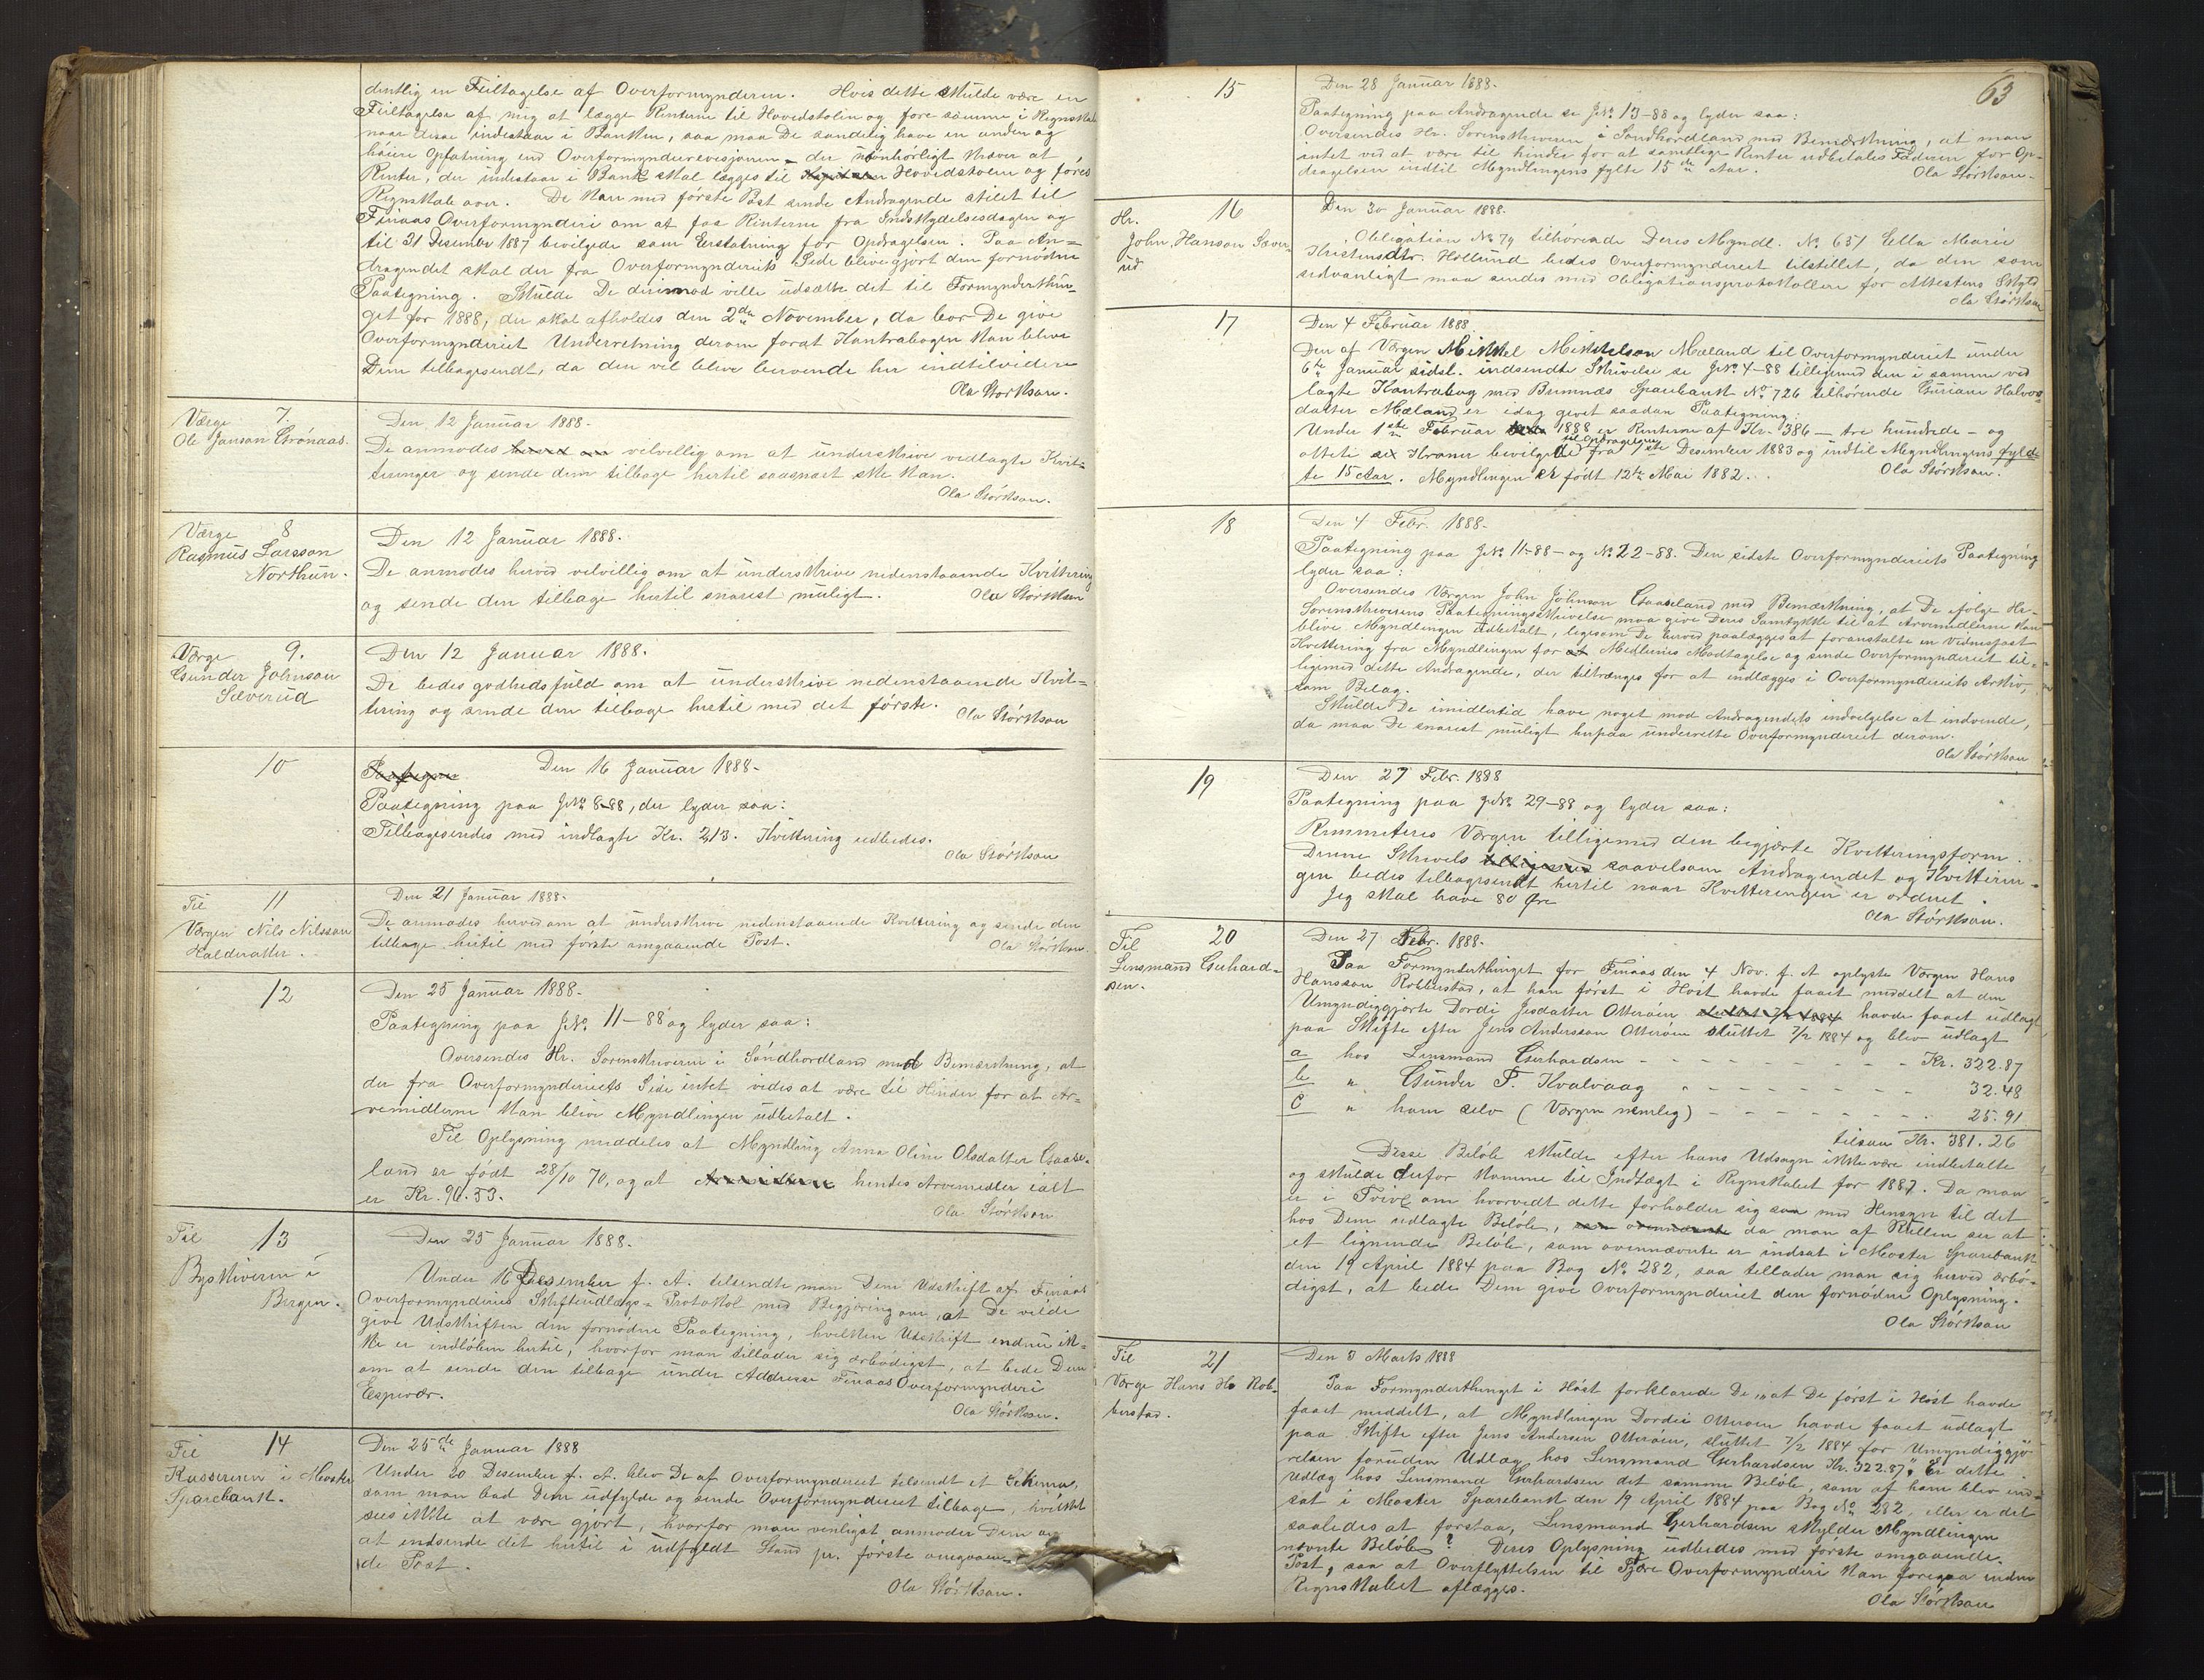 dentlig en Feiltagelse af Overformynderen. Hvis dette skulde være en
Feiltagelse af mig at lægge Renterne til Hovedstolen og føre samme i Regnskab
naar disse indestaar i Banken, saa maa De sandelig have en anden og
høiere Opfatning end Overformynderrevisjonen, der uønhørligt kræver at
Renter, der indestaar i Bank skal lægges til Hovedstolen og føres
Regnskab over. De kan med første Post sende Andragende stilet til
Finaas Overformynderi om at faa Renterne fra Indskydelsesdagen og
til 31 Desember 1887 bevilgede som Erstatning for Opdragelsen. Paa An=
dragendet skal der fra Overformynderiets Side blive gjort den fornødne
Paategning. Skulde De derimod ville udsætte det til Formynderthin-
get for 1888, der skal afholdes den 2den November, da bør De give
Overformynderiet Underretning derom forat Kontrabogen kan blive
Dem tilbagesendt, da den vil blive beroende her indtilvidere
Ola Størkson.
Værge 7.
Ole Janson Grönaas.
Den 12 Januar 1888.
De anmodes velvillig om at underskrive vedlagte Kvit-
teringer og sende dem tilbage hertil saasnart ske kan.
Ola Størkson.
Værge 8
Rasmus Larsson
Northun.
Den 12 Januar 1888.
De anmodes herved velvillig om at underskrive nedenstaaende Kvittering
og sende den tilbage hertil snarest muligt. Ola Størkson
Værge 9.
Gunder Johnson
Sæverud
Den 12 Januar 1888.
De bedes godhedsfuld om at underskrive nedenstaaende Kvit=
tering og sende den tilbage hertil med det første. Ola Størkson
10
Den 16 Januar 1888.
Paategning paa J.No. 8-88, der lyder saa:
Tilbagesendes med indlagte Kr. 213. Kvittering udbedes.
Ola Størkson
Til 11
Værgen Nils Nilsson
Halderaker.
Den 21 Januar 1888.
De anmodes herved om at underskrive nedenstaaende Kvittering og sende den
tilbage hertil med første omgaaende Post. Ola Størkson.
12
Den 25 Januar 1888.
Paategning paa J.No. 11-88 og lyder saa:
Oversendes Hr. Sorenskriveren i Söndhordland med Bemærkning, at
der fra Overformynderiets Side intet vides at være til Hinder for at Ar=
vemidlerne kan blive Myndlingen udbetalt.
Til Oplysning meddeles at Myndling Anna Oline Olsdatter Gaase-
land er født 28/10 70, og at hendes Arvemidler ialt
er Kr. 96.53.
Ola Størkson
Til 13
Byskriveren i
Bergen.
Den 25 Januar 1888.
Under 16 Desember f. A. tilsendte man Dem Udskrift af Finaas
Overformynderies Skifteudlægs=Protokol med Begjæring om, at De vilde
give Udskriften den fornødne Paategning, hvilken Udskrift endnu ik-
ke er indløben hertil, hvorfor man tillader sig ærbødigst, at bede Dem
om at sende den tilbage under Addresse Finaas Overformynderi
Espevær.
Ola Størkson.
Til 14
Kassereren i Moster
Sparebank.
Den 25de Januar 1888
Under 20 Desember f. A. blev De af Overformynderiet tilsendt et Schema,
som man bad Dem udfylde og sende Overformynderiet tilbage, hvilket
sees ikke at være gjort, hvorfor man venligst anmoder Dem om
at indsende det hertil i udfyldt Stand pr. første omgaaen-
de Post.
Ola Størkson.
63
15
Den 28 Januar 1888.
Paategning paa Andragende se J.No. 13-88 og lyder saa:
Oversendes Hr. Sorenskriveren i Söndhordland med Bemærkning, at man
intet ved at være til hinder for at samtlige Renter udbetales Faderen for Op-
dragelsen indtil Myndlingens fylte 15de Aar. Ola Størkson.
Hr. 16
John Hanson Sæver-
ud
Den 30 Januar 1888.
Obligation No. 79 tilhørende Deres Myndl. No. 651 Ella Marie
Kristensdtr. Hollund bedes Overformynderiet tilstillet, da den som
sedvanligt maa sendes med Obligationsprotokollen for Attestens Skyld
Ola Størkson
17
Den 4 Februar 1888.
Den af Værgen Mikkel Mikkelson Mæland til Overformynderiet under
6te Januar sidsl. indsendte Skrivelse se J.No. 4-88 tilligemed den i samme ved
lagte Kontrabog med Bremnæs Sparebank No. 726 tilhørende Guriane Halvors
datter Mæland er idag givet saadan Paategning:
Under 1ste Februar 1888 er Renterne af Kr. 386 — tre hundrede - og
otteti sex Kroner bevilgede til Opdragelsen fra 1ste Desember 1883 og indtil Myndlingens fyld-
te 15 Aar. Myndlingen er født 12te Mai 1882. Ola Størkson.
18
Den 4 Febr. 1888.
Paategning paa J.No. 11-88- og No. 22-88. Den sidste Overformynderiets Paategning
lyder saa:
Oversendes Værgen John Johnson Gaaseland med Bemærkning, at De ifølge Hr.
Sorenskriverens Paategningsskrivelse maa give Deres Samtykke til at Arvemidlerne kan
blive Myndlingen udbetalt, ligesom De herved paalægges at foranstalte en vidnefast
Kvittering fra Myndlingen for Midlernes Modtagelse og sende Overformynderiet til-
ligemed dette Andragende, der tiltrænges for at indlægges i Overformynderiets Arkiv,
som Belag.
Skulde De imidlertid have noget mod Andragendets indvelgelse at indvende,
da maa De snarest muligt herpaa underrette Overformynderiet derom.
Ola Størkson
19
Den 27 Febr. 1888
Paategning paa J.No. 29-88 og lyder saa:
Remmiteres Værgen tilligemed den begjærte Kvitteringsform.
Denne Skrivels saavelsom Andragendet og Kvitterin-
gen bedes tilbagesendt hertil naar Kvitteringen er ordnet.
Jeg skal have 80 Øre
Ola Størkson.
Til 20
Lensmand Gerhard-
sen.
Den 27 Febr. 1888.
Paa Formynderthinget for Finaas den 4 Nov. f. A oplyste Værgen Hans
Hansson Robberstad, at han først i Høst havde faaet meddelt at den
Umyndiggjorte Dordi Jesdatter Otterøien havde faaet udlagt
paa Skifte efter Jens Andersson Otterøien sluttet 7/2 1884 og blev udlagt
a hos Lensmand Gerhardsen - - - - - - Kr. 322.87
b " Gunder T. Kvalvaag " - - - - - - 32.48
c " ham selv (Værgen nemlig) - - - - - - 25.91
tilsam Kr. 381.26
Disse Beløb skulde efter hans Udsagn ikke være indbetalte
og skulde derfor komme til Indtægt i Regnskabet for 1887. Da man
er i Tvivl om hvorvidt dette forholder sig saa med Hensyn til det
hos Dem udlagte Beløb, da man af Rullen ser at
et lignende Beløb, som ovennævnte er indsat i Moster Sparebank
den 19 April 1884 paa Bog No. 282, saa tillader man sig herved ærbø-
digst, at bede Dem give Overformynderiet den fornødne Oplysning.
Ola Størkson
Til 21
Værge Hans H. Rob-
berstad.
Den 3 Marts 1888
Paa Formynderthinget i Høst forklarede De, at De først i Høst havde
faaet meddelt, at Myndlingen Dordei Otterøien havde faaet udlagt
paa Skifte efter Jens Andersen Otterøien, sluttet 7/2 1884 for Umyndiggjø-
relsen foruden Udlæg hos Lensmand Gerhardsen Kr. 322.87. Er dette
Udlæg hos Lensmand Gerhardsen det samme Beløb, som af ham blev ind-
sat i Moster Sparebank den 19 April 1884 paa Bog No. 282, eller er det
saaledes at forstaa, Lensmand Gerhardsen skylder Myndlingen
nævnte Beløb? Deres Oplysning udbedes med første omgaaende
Post, saa at Overflyttelsen til Fjære Overformynderi kan foregaa inden
Regnskabet aflægges.
Ola Størkson